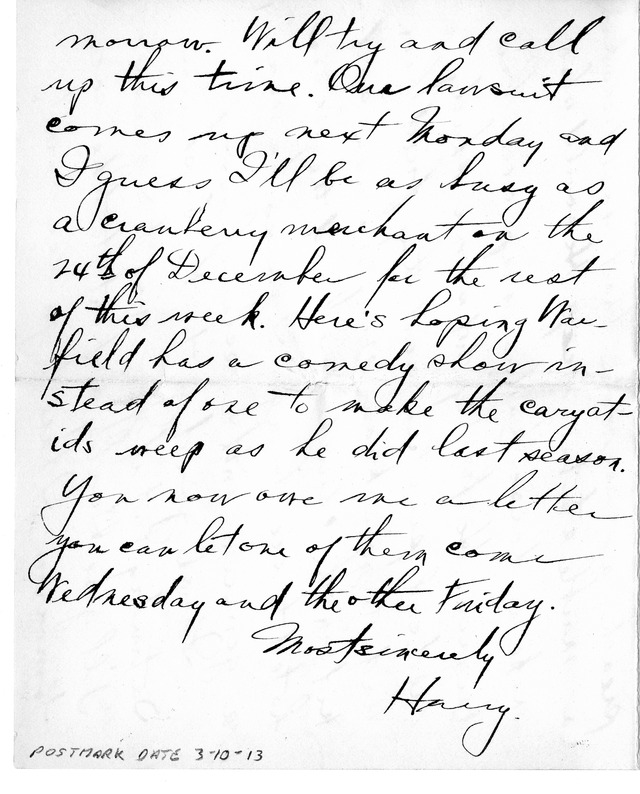 morrow. Will try and call
up this time. Our lawsuit
comes up next Monday and
I guess I'll be as busy as
a cranberry merchant on the
24th of December for the rest
of this week. Here's hoping War-
field has a comedy show in-
stead of one to make the caryat-
ids weep as he did last season.
You now owe me a letter
you can let one of them come
Wednesday and the other Friday.
Most sincerely
Harry.
POSTMARK DATE 3-10-13